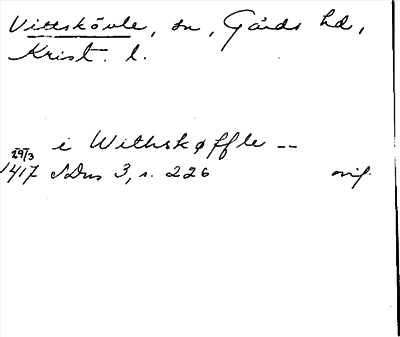 Vittskövle, sn, Gärds hd,
Krist. l.
i Withskøffle --
29/3
1417 SDns 3, s. 226 orig.